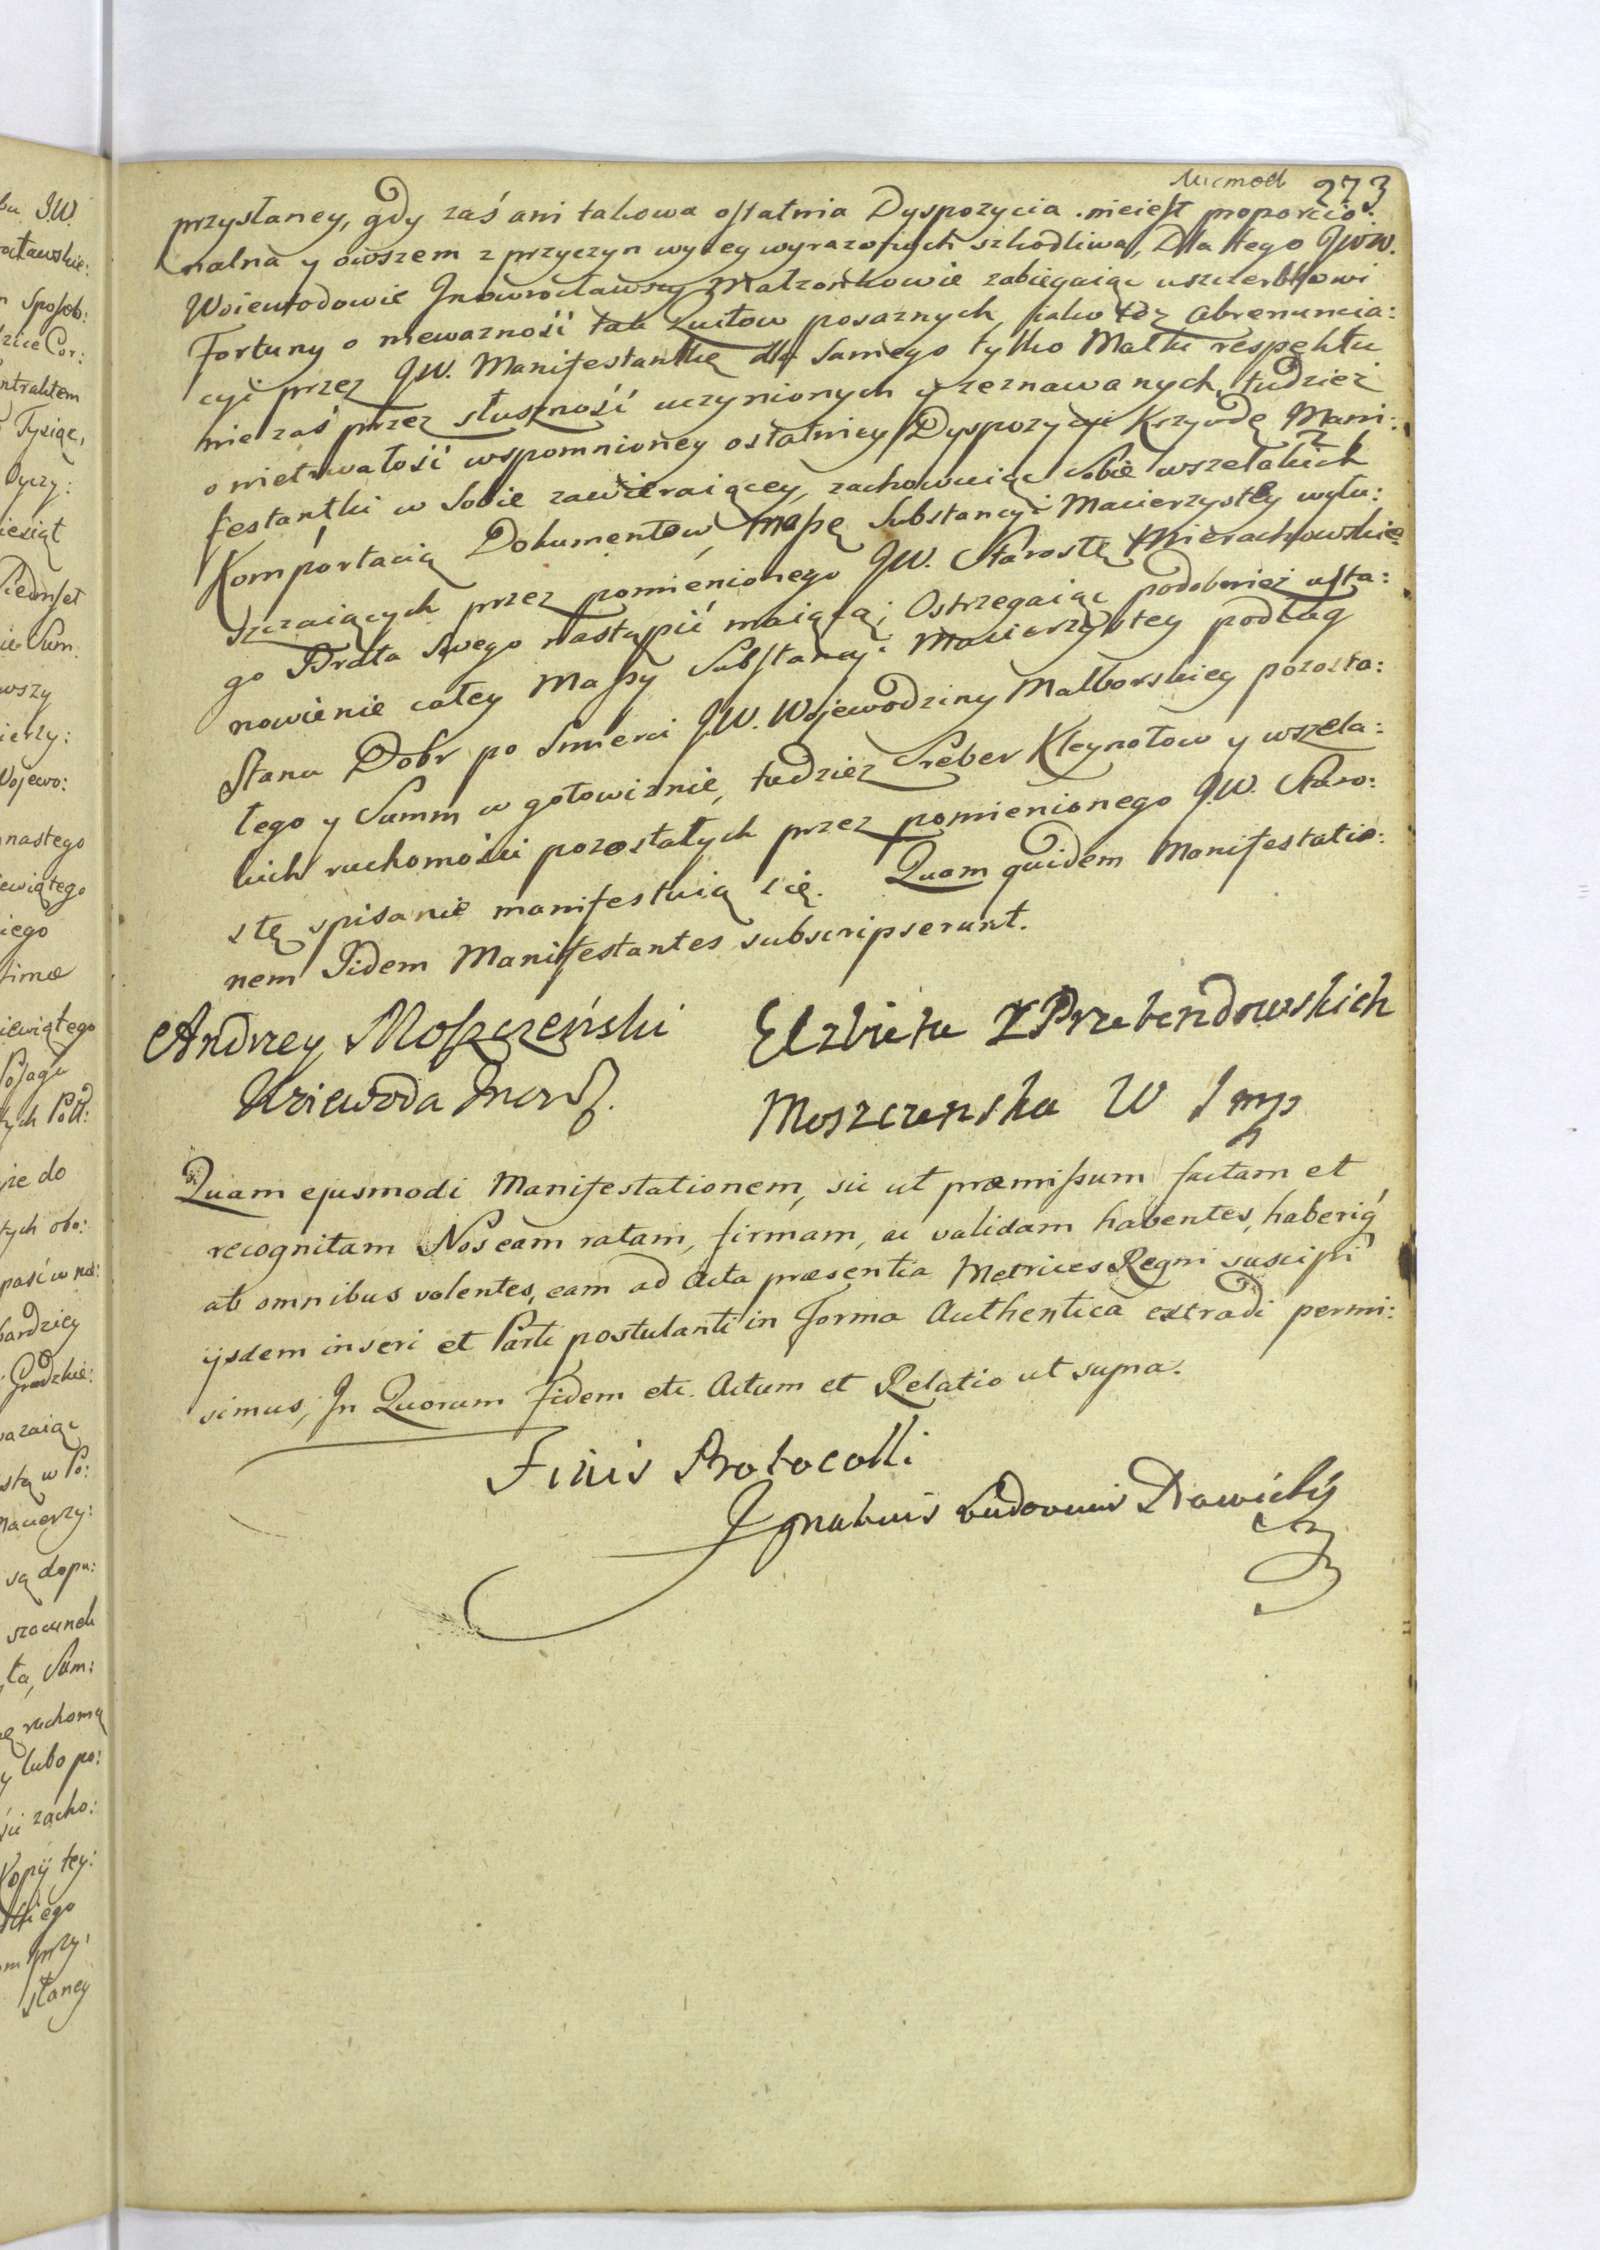 273
przysłaney, gdy zaś ani takowa ostatnia Dyspozycia nieiest proporcio:
nalna y owszem z przyczyn wyżey wyrazonych szkodliwa, Dla tego JWW.
Woiewodowie Inowrocławscy Małżonkowie zabiegaiąc uszczerbkowi
Fortuny o nieważność tak Zucłow posażnych, jako też Abrenuncia:
cyi przez JW. Manifestantkę dla samego tylko Matki respektu
nie zaś przez słuszność uczynionych y zeznawanych, tudzież
o nietrwałość wspomnioney ostatniey Dyspozycyi Krzywdę Mani:
festantki w Sobie zawieraiącey, zachowuiąc Sobie wszelakich
Komportacią Dokumentow, Massę Substancyi Macierzystey wytu:
szczaiących przez pomienionego JW. Starostę Mierachowskie:
go Brata swego nastąpić maiącą; Ostrzegaiąc podobnież usta:
nowienie całey Massy Substancyi Macierzystey podług
Stanu Dobr po Smierci J.W. Wojewodziny Malborskiey pozosta:
łego y Summ w gotowiznie, tudzież Sreber Kleynotow y wszela:
kich ruchomości pozostałych przez pomienionego J.W. Staro:
stę spisanie manifestuią się. Quam quidem Manifestatio:
nem Iidem Manifestantes subscripserunt.
Andrzey Moszczeński Elzbieta z Przebendowskich
Woiewoda Inow. Moszczenska W I mp
Quam ejusmodi Manifestationem, sic ut præmissum factam et
recognitam Nos eam ratam, firmam, ac validam habentes, haberiq
ab omnibus volentes, eam ad Acta præsentia Metrices Regni suscipi
ijsdem inseri et Parti postulanti in Forma Authentica extradi permi:
simus, In Quorum Fidem etc. Actum et Relatio ut supra.
Finis Protocolli
Ignatius Ludovicus Dawickij